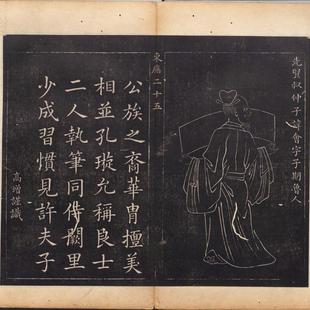 先賢叔仲子諱會字子期魯人
東廡二十五
公族之裔華冑擅美
相並孔璇允稱良士
二人執筆同侍闕里
少成習慣見許夫子
高增謹識